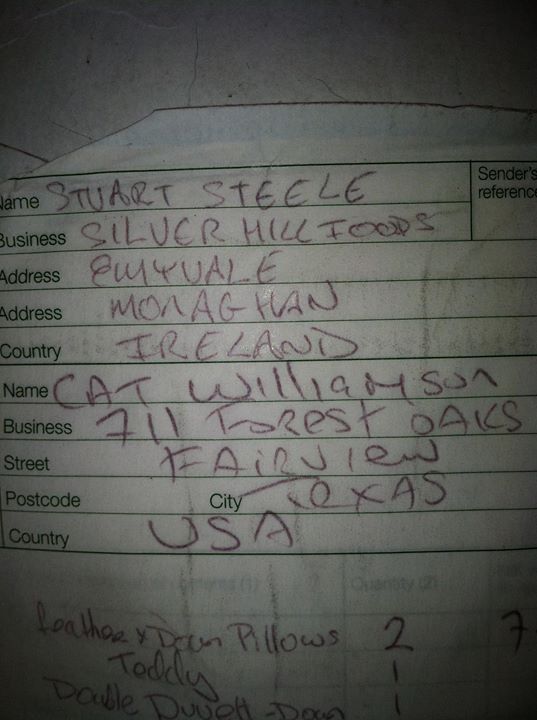 Name STUART STEELE
Sender's reference
Business SILVER HILL FOODS
Address EMYVALE
Address MONAGHAN
Country IRELAND
Name CAT WilliAMSON
Business 711 FOREST OAKS
Street FAIRVIEW
Postcode City TEXAS
Country USA
(1) Quantity (2)
feather & Down Pillows 2 7
Teddy 1
Double Duvett - Down 1